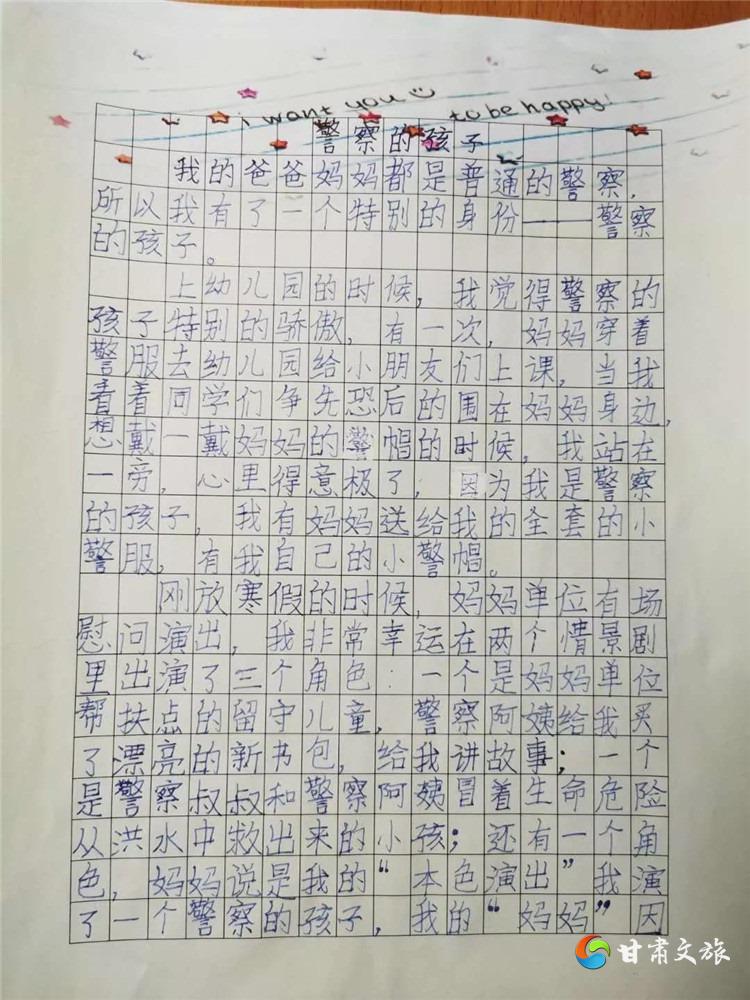 i want you
to be happy!
警察的孩子
我的爸爸妈妈都是普通的警察，
所以我有了一个特别的身份——警察
的孩子。
上幼儿园的时候，我觉得警察的
孩子特别的骄傲，有一次，妈妈穿着
警服去幼儿园给小朋友们上课，当我
看着同学们争先恐后的围在妈妈身边，
想戴一戴妈妈的警帽的时候，我站在
一旁，心里得意极了，因为我是警察
的孩子，我有妈妈送给我的全套的小
警服，有我自己的小警帽。
刚放寒假的时候，妈妈单位有场
慰问演出，我非常幸运在两个情景剧
里出演了三个角色：一个是妈妈单位
帮扶点的留守儿童，警察阿姨给我买
了漂亮的新书包，给我讲故事；一个
是警察叔叔和警察阿姨冒着生命危险
从洪水中救出来的小孩；还有一个角
色，妈妈说是我的“本色演出”我演
了一个警察的孩子，我的“妈妈”因
甘肃文旅